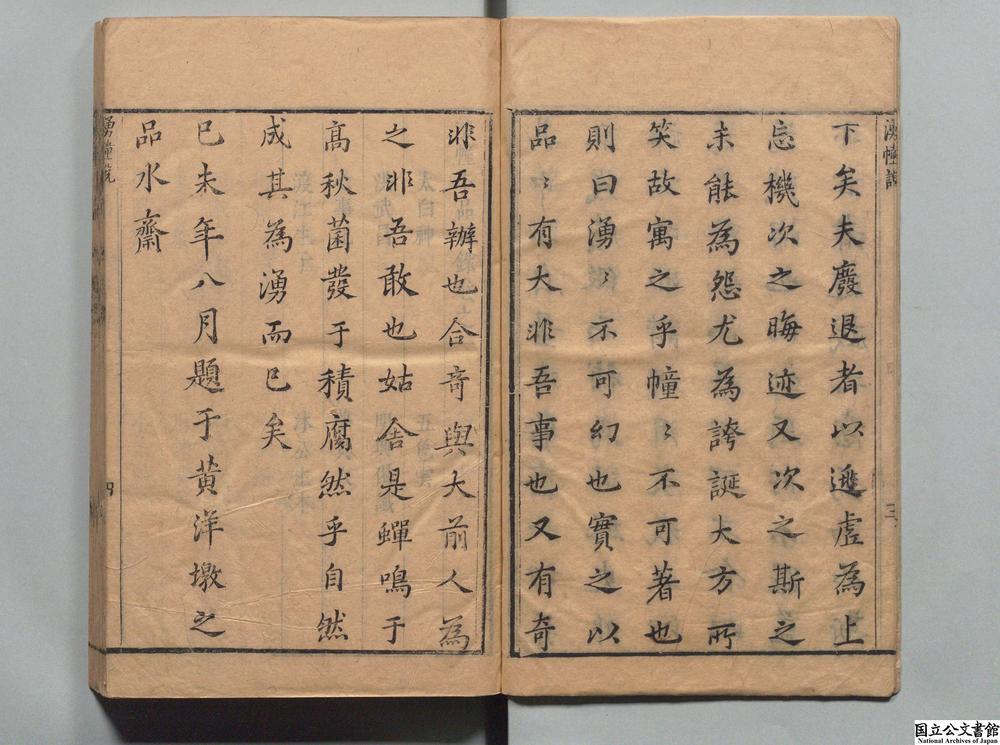 湧幢說
三
下矣夫廢退者以逃虛為上
忘機次之晦迹又次之斯之
未能為怨尤為誇誕大方所
笑故寓之乎幢〻不可著也
則曰湧〻不可幻也實之以
品有大非吾事也又有奇
非吾辦也合奇與大前人為
之非吾敢也姑舍是蟬鳴于
高秋菌發于積腐然乎自然
成其為湧而已矣
已未年八月題于黃洋墩之
品水齋
湧幢說
四
国立公文書館
National Archives of Japan